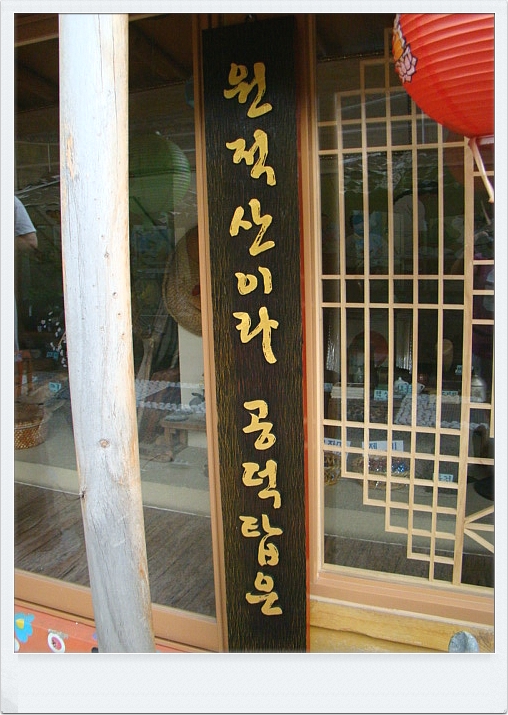 원적산이라 공덕탑은